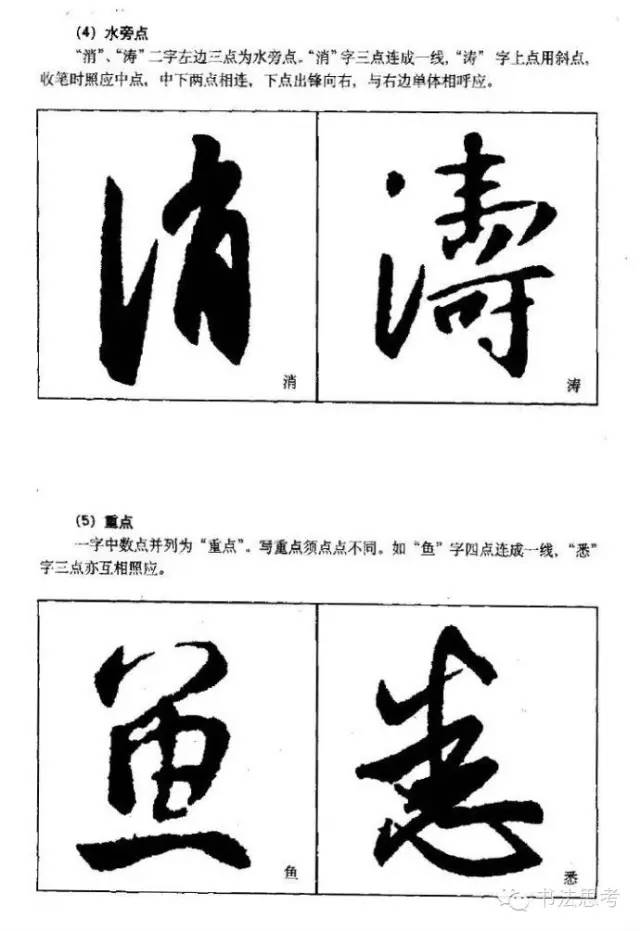 （4）水旁点
“消”、“涛”二字左边三点为水旁点。“消”字三点连成一线，“涛” 字上点用斜点，
收笔时照应中点，中下两点相连，下点出锋向右，与右边单体相呼应。
消 濤
消 涛
（5）重点
一字中数点并列为“重点”。写重点须点点不同。如“鱼”字四点连成一线，“悉”
字三点亦互相照应。
鱼 悉
鱼 悉
书法思考